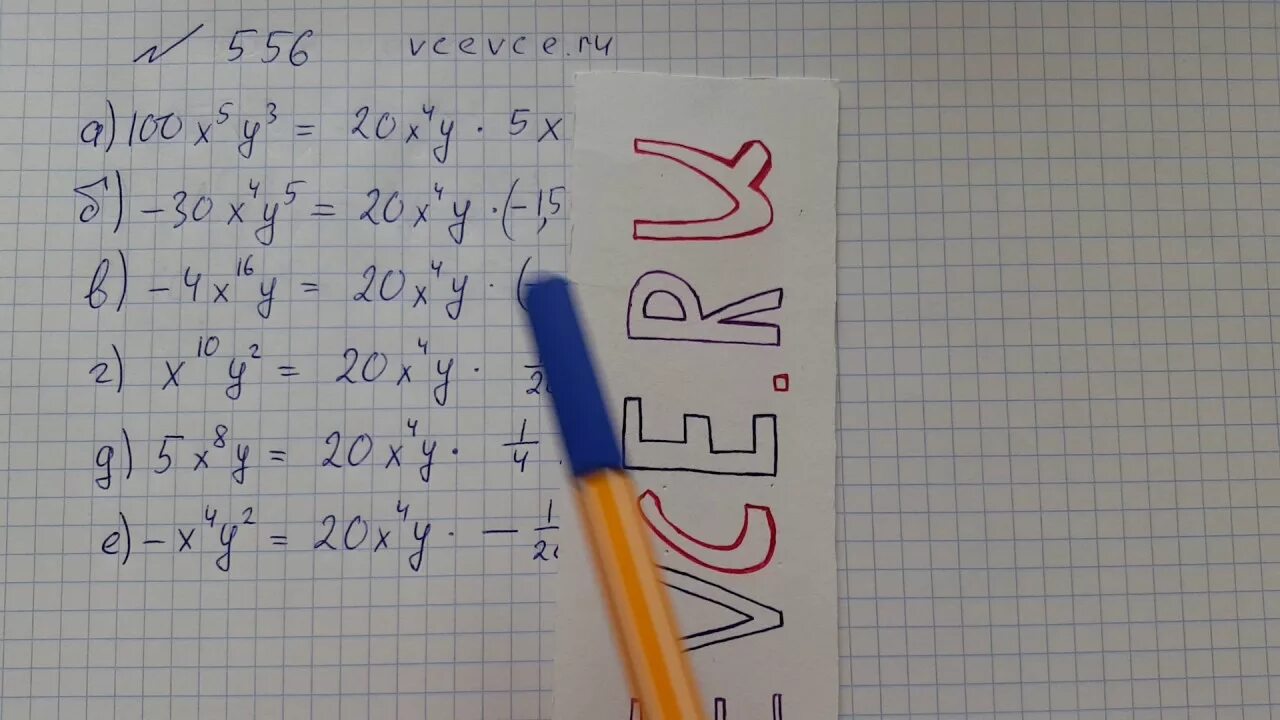 № 556 vcevce.ru
а) 100x⁵y³ = 20x⁴y · 5x
б) -30x⁴y⁵ = 20x⁴y · (-1,5
в) -4x¹⁶y = 20x⁴y · (
г) x¹⁰y² = 20x⁴y ·
д) 5x⁸y = 20x⁴y · 1/4
е) -x⁴y² = 20x⁴y · - 1/2
VCE.RU